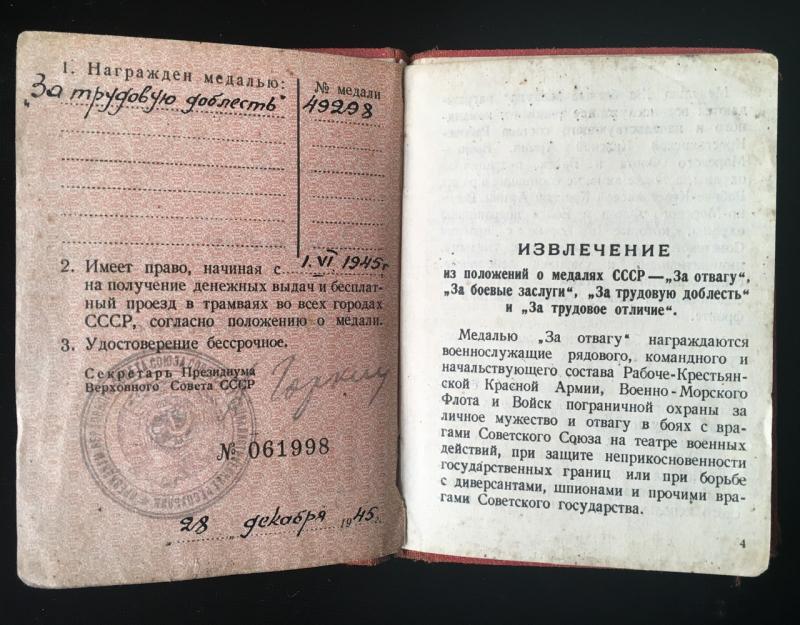 1. Награжден медалью:
№ медали
„За трудовую доблесть“
49298
2. Имеет право, начиная с 1.VI 1945г
на получение денежных выдач и бесплат-
ный проезд в трамваях во всех городах
СССР, согласно положению о медали.
3. Удостоверение бессрочное.
Секретарь Президиума
Верховного Совета СССР
Горкин
№ 061998
„28„ декабря 1945г.
ИЗВЛЕЧЕНИЕ
из положений о медалях СССР—„За отвагу“,
„За боевые заслуги“, „За трудовую доблесть“
и „За трудовое отличие“.
Медалью „За отвагу“ награждаются
военнослужащие рядового, командного и
начальствующего состава Рабоче-Крестьян-
ской Красной Армии, Военно-Морского
Флота и Войск пограничной охраны за
личное мужество и отвагу в боях с вра-
гами Советского Союза на театре военных
действий, при защите неприкосновенности
государственных границ или при борьбе
с диверсантами, шпионами и прочими вра-
гами Советского государства.
4